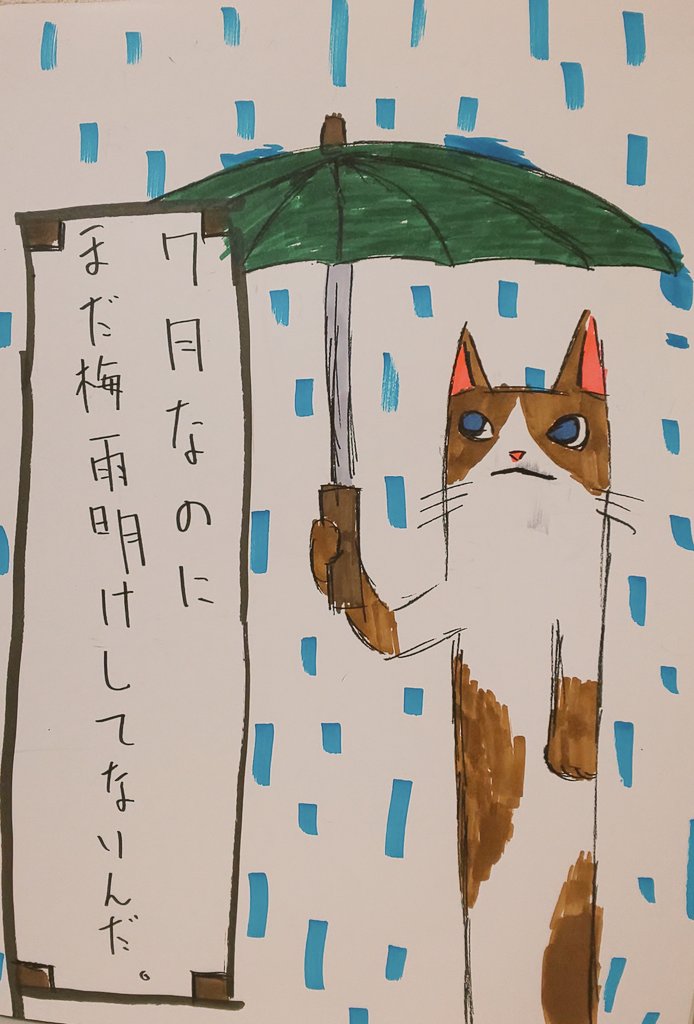 7月なのに
まだ梅雨明けしてないんだ。